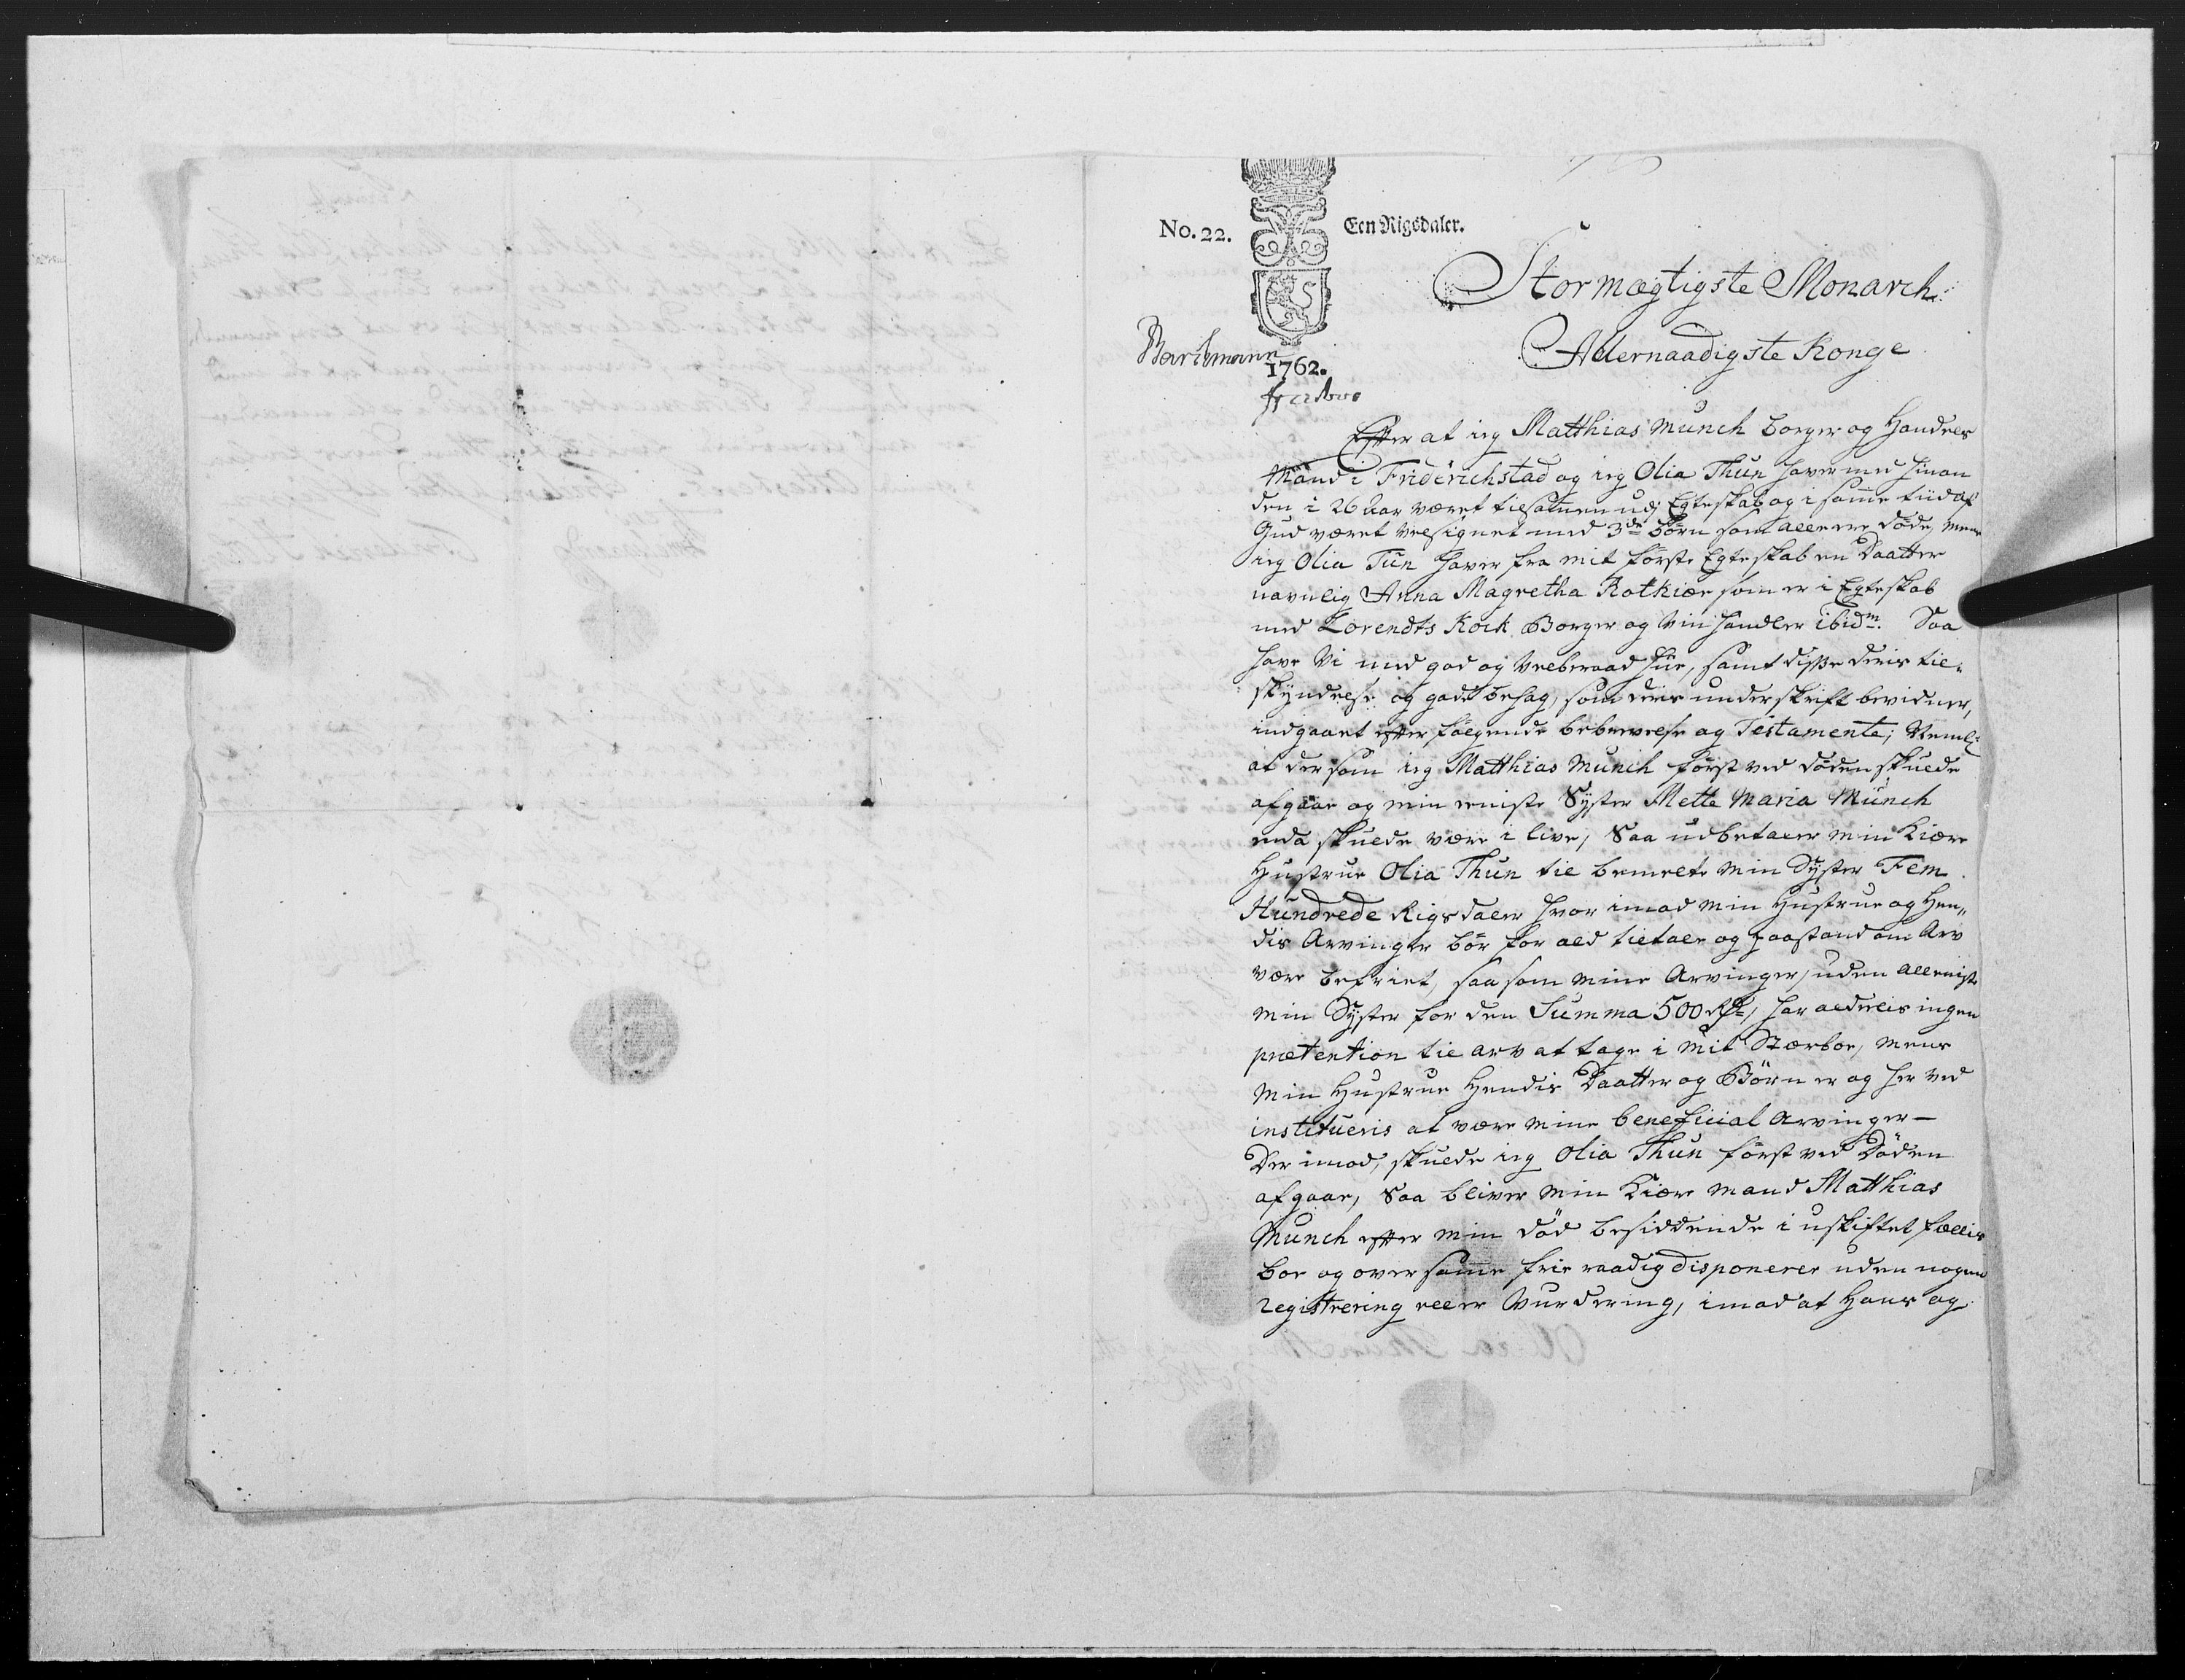 No. 22.
Een Rigsdaler.
Stormægtigste Monarch
Allernaadigste Konge
1762.
Efter at ieg Matthias Munch borger og Handels
Mand i Friderichstad og ieg Olia Thun haver med hinan
den i 26 Aar været tilsamen udj Egteskab og i samme tiid af
Gud været velsignet med 3de børn som alle ere døde, mens
ieg Olia Tun haver fra mit første Egteskab en Daatter
navnlig Anna Magretha Rotkiær som er i Egteskab
med Lorendts Kock Borger og Viin handler ibidm. Saa
have Vi med god og velberaad hue, samt disse deris til-
skyndelse og gode behag, som deris underskrift bevidner,
indgaaet efter følgende bebrevelse og Testamente; Neml:
at dersom ieg Matthias Munch først ved døden skulde
afgaae og min eniste Syster Mette Maria Münch
enda skulde være i live, Saa udbetaler min Kiære
Hustrue Olia Thun til bemelte min Syster Fem
Hundrede Rigsdaler hvor imod min Hustrue og Hen„
dis Arvinger bør for ald tiltale og paastand om Arv
være befriet, saasom mine Arvinger, uden alleniste
min Syster for den Summa 500 Rdr, har aldeelis ingen
prætention til arv at tage i mit Stærboe, mens
min Hustrue Hendis Daatter og Børn er og her ved
institueris at være mine beneficial Arvinger—
Der imod, skulde ieg Olia Thun først ved Døden
afgaae, Saa bliver min Kiære mand Matthias
Munch efter min død besiddende i uskiftet fællis
boe og over samme frie raadig disponerer uden nogen
registrering eller Vurdering, imod at Hans og